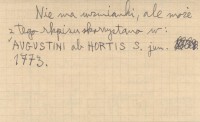 Nie ma wzmianki, ale może
z tego rkpisu skorzystano w:
AUGUSTINI ab HORTIS S. jun.
1773.